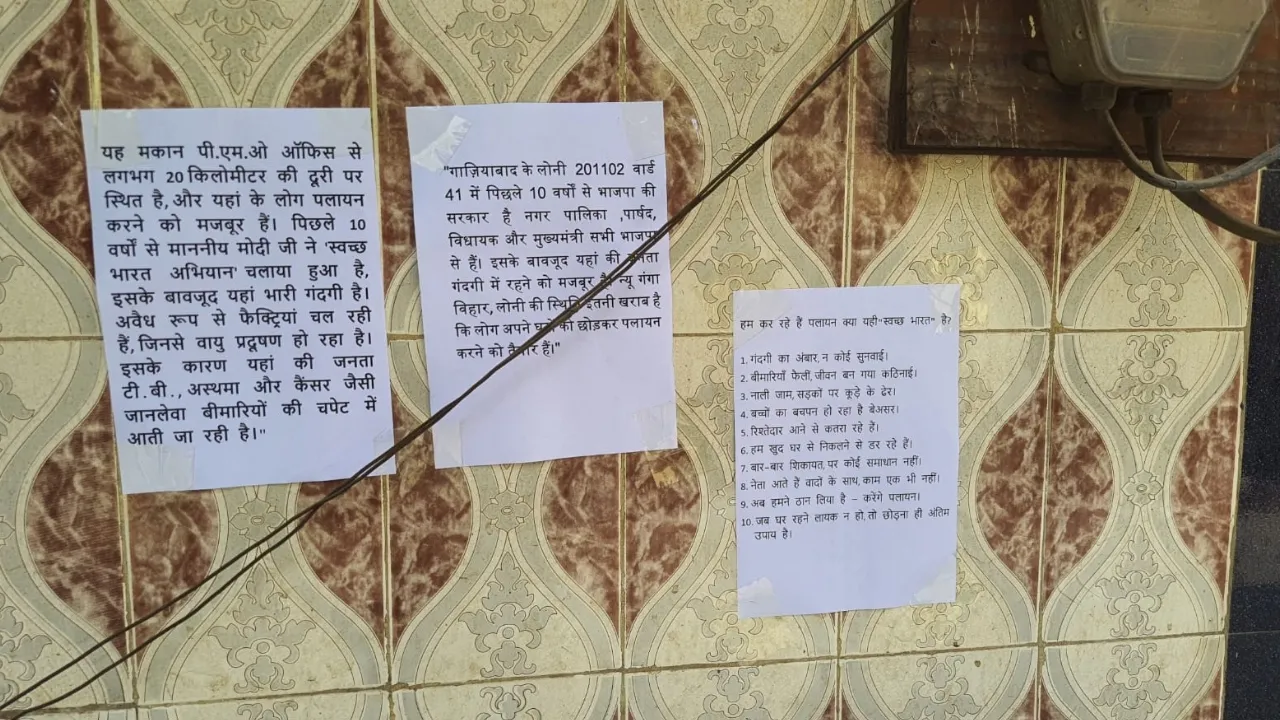 यह मकान पी.एम.ओ ऑफिस से
लगभग 20 किलोमीटर की दूरी पर
स्थित है, और यहां के लोग पलायन
करने को मजबूर हैं। पिछले 10
वर्षों से माननीय मोदी जी ने 'स्वच्छ
भारत अभियान' चलाया हुआ है,
इसके बावजूद यहां भारी गंदगी है।
अवैध रूप से फैक्ट्रियां चल रही
हैं, जिनसे वायु प्रदूषण हो रहा है।
इसके कारण यहां की जनता
टी.बी., अस्थमा और कैंसर जैसी
जानलेवा बीमारियों की चपेट में
आती जा रही है।"
"गाज़ियाबाद के लोनी 201102 वार्ड
41 में पिछले 10 वर्षों से भाजपा की
सरकार है नगर पालिका ,पार्षद,
विधायक और मुख्यमंत्री सभी भाजपा
से हैं। इसके बावजूद यहां की जनता
गंदगी में रहने को मजबूर है। न्यू गंगा
बिहार, लोनी की स्थिति इतनी खराब है
कि लोग अपने घरों को छोड़कर पलायन
करने को तैयार हैं।"
हम कर रहे हैं पलायन क्या यही "स्वच्छ भारत" है?
1. गंदगी का अंबार, न कोई सुनवाई।
2. बीमारियाँ फैलीं, जीवन बन गया कठिनाई।
3. नाली जाम, सड़कों पर कूड़े के ढेर।
4. बच्चों का बचपन हो रहा है बेअसर।
5. रिश्तेदार आने से कतरा रहे हैं।
6. हम खुद घर से निकलने से डर रहे हैं।
7. बार-बार शिकायत, पर कोई समाधान नहीं।
8. नेता आते हैं वादों के साथ, काम एक भी नहीं।
9. अब हमने ठान लिया है – करेंगे पलायन।
10. जब घर रहने लायक न हो, तो छोड़ना ही अंतिम
उपाय है।